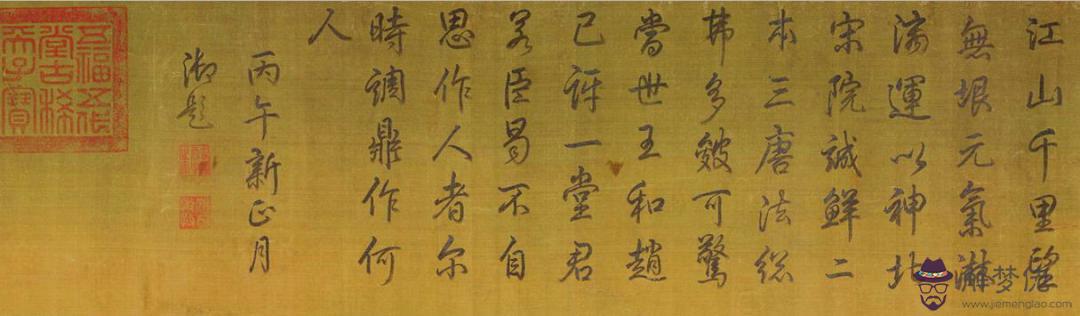 江山千里望
無垠元氣淋
漓運以神北
宋院誠鮮二
本三唐法総
弗多皴可驚
當世王和趙
已訝一堂君
若臣曷不自
思作人者尔
時調鼎作何
人
丙午新正月
御題
五福五代
堂古稀
天子寶
梦
www.jiemenglao.com